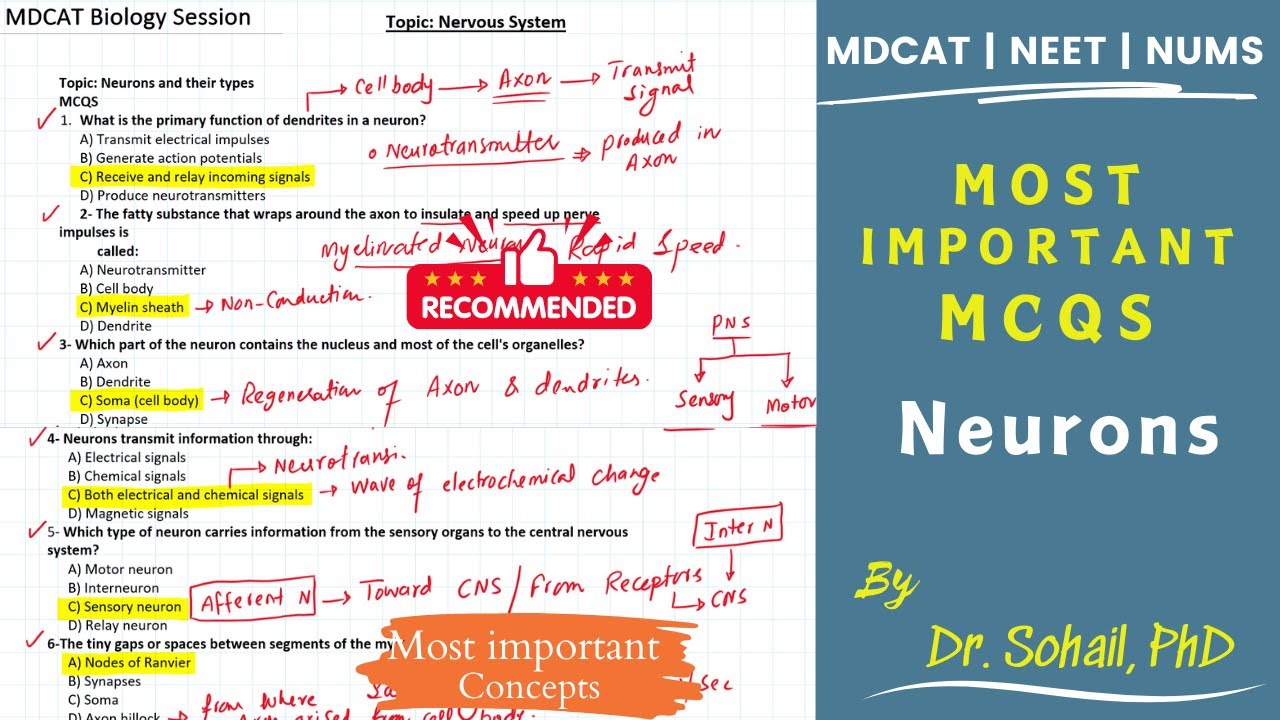 MDCAT Biology Session
Topic: Nervous System
Topic: Neurons and their types
MCQS
Cell body → Axon → Transmit
signal
1. What is the primary function of dendrites in a neuron?
A) Transmit electrical impulses
B) Generate action potentials
C) Receive and relay incoming signals
D) Produce neurotransmitters
Neurotransmitter ⇒ produced in
Axon
2- The fatty substance that wraps around the axon to insulate and speed up nerve
impulses is
called:
Myelinated Rapid Speed.
A) Neurotransmitter
B) Cell body
C) Myelin sheath → Non-Conduction.
D) Dendrite
RECOMMENDED
3- Which part of the neuron contains the nucleus and most of the cell's organelles?
A) Axon
B) Dendrite
C) Soma (cell body) → Regeneration of Axon & dendrites.
D) Synapse
PNS
Sensory Motor
4- Neurons transmit information through:
A) Electrical signals
B) Chemical signals → Neurotransi.
C) Both electrical and chemical signals → wave of electrochemical change
D) Magnetic signals
5- Which type of neuron carries information from the sensory organs to the central nervous
system?
A) Motor neuron
B) Interneuron
C) Sensory neuron
D) Relay neuron
Afferent N → Toward CNS / from Receptors
Inter N
CNS
6-The tiny gaps or spaces between segments of the
A) Nodes of Ranvier
B) Synapses
C) Soma
D) Axon hillock → from where
arised from cell body.
/sec
Most important
Concepts
MDCAT | NEET | NUMS
MOST
IMPORTANT
MCQS
Neurons
By
Dr. Sohail, PhD